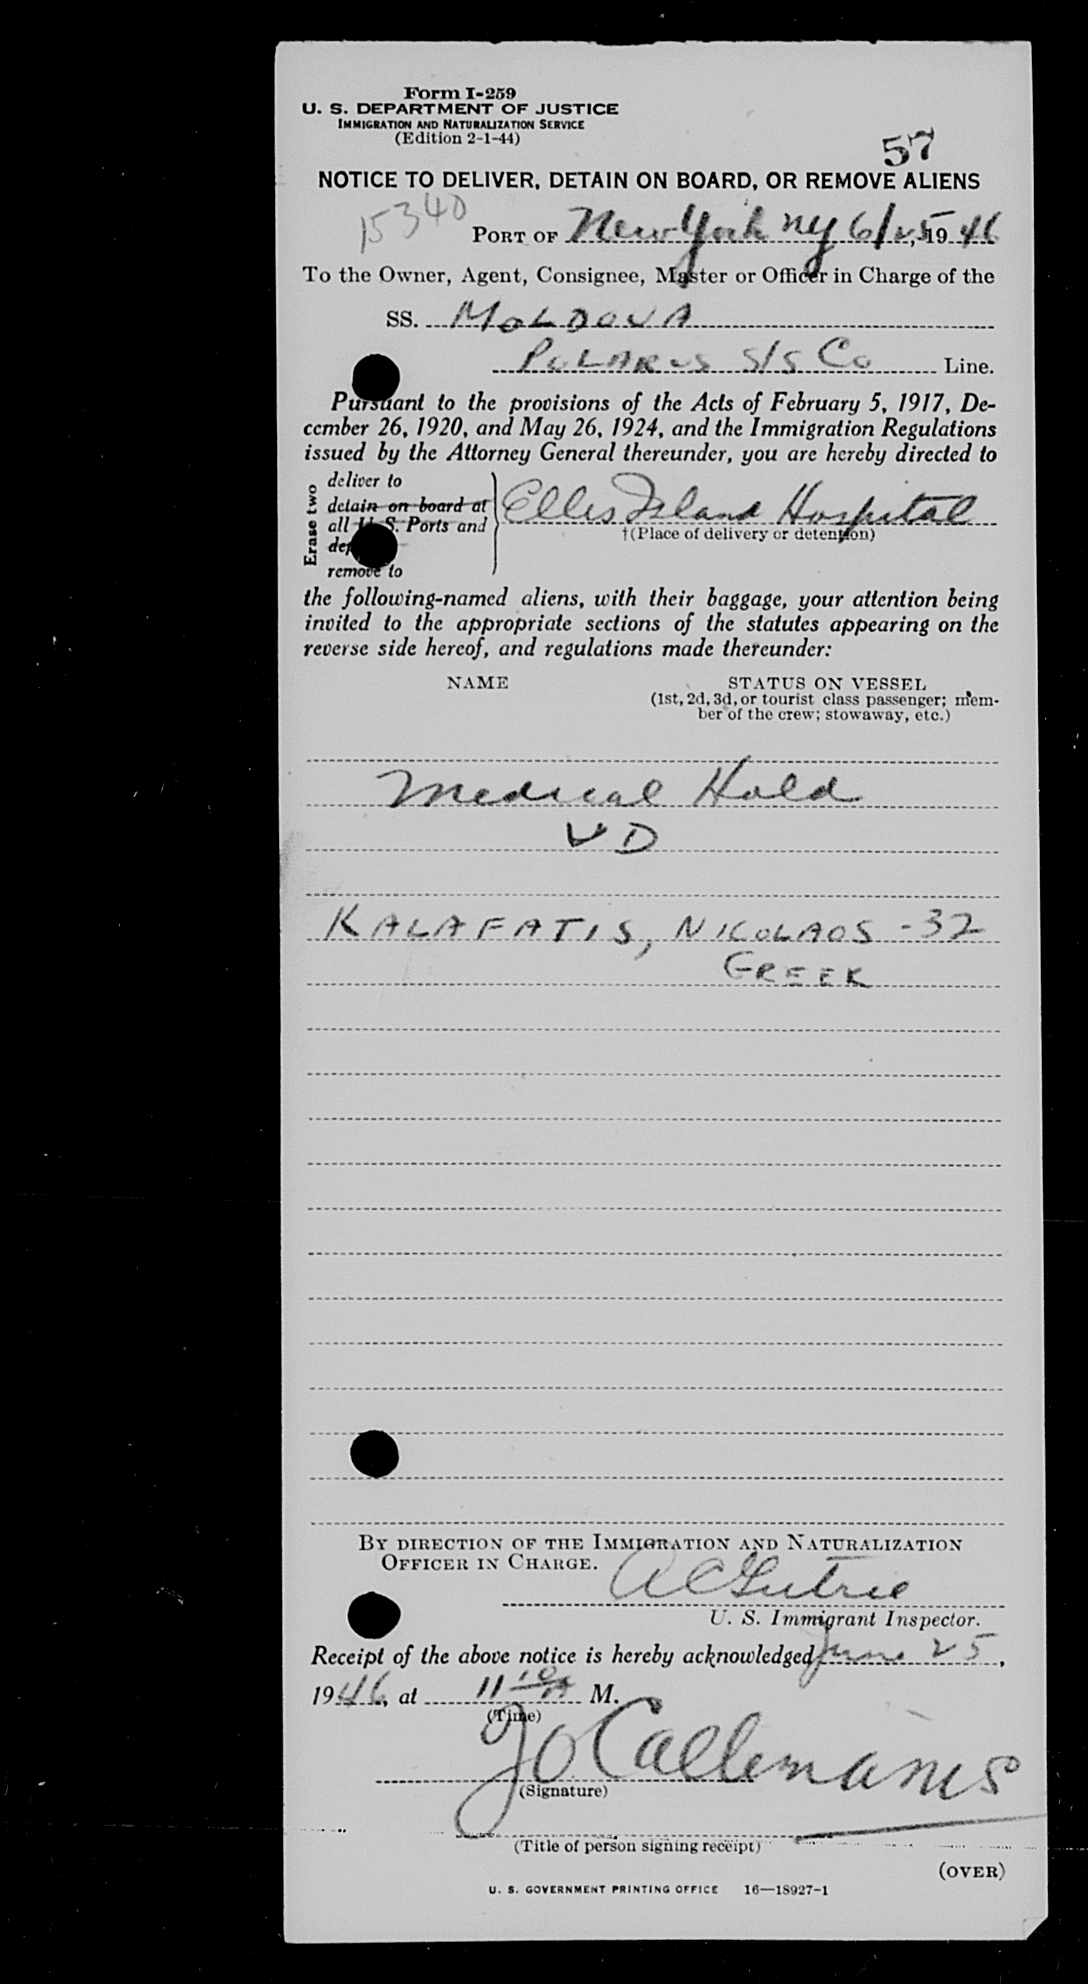 Form I-259
U. S. DEPARTMENT OF JUSTICE
IMMIGRATION AND NATURALIZATION SERVICE
(Edition 2-1-44)
57
NOTICE TO DELIVER, DETAIN ON BOARD, OR REMOVE ALIENS
15340
PORT OF New York NY 6/25, 1946
To the Owner, Agent, Consignee, Master or Officer in Charge of the
SS. MOLDOVA
POLARUS S/S Co Line.
Pursuant to the provisions of the Acts of February 5, 1917, De-
cember 26, 1920, and May 26, 1924, and the Immigration Regulations
issued by the Attorney General thereunder, you are hereby directed to
Erase two
deliver to
detain on board at
all U. S. Ports and
remove to
Ellis Island Hospital
†(Place of delivery or detention)
the following-named aliens, with their baggage, your attention being
invited to the appropriate sections of the statutes appearing on the
reverse side hereof, and regulations made thereunder:
NAME
STATUS ON VESSEL
(1st, 2d, 3d, or tourist class passenger; mem-
ber of the crew; stowaway, etc.)
Medical Hold
VD
KALAFATIS, NICOLAOS - 32
GREEK
BY DIRECTION OF THE IMMIGRATION AND NATURALIZATION
OFFICER IN CHARGE.
U. S. Immigrant Inspector.
Receipt of the above notice is hereby acknowledged June 25,
1946, at 11 10 A M.
(Time)
(Signature)
(Title of person signing receipt)
(OVER)
U. S. GOVERNMENT PRINTING OFFICE 16—18927-1